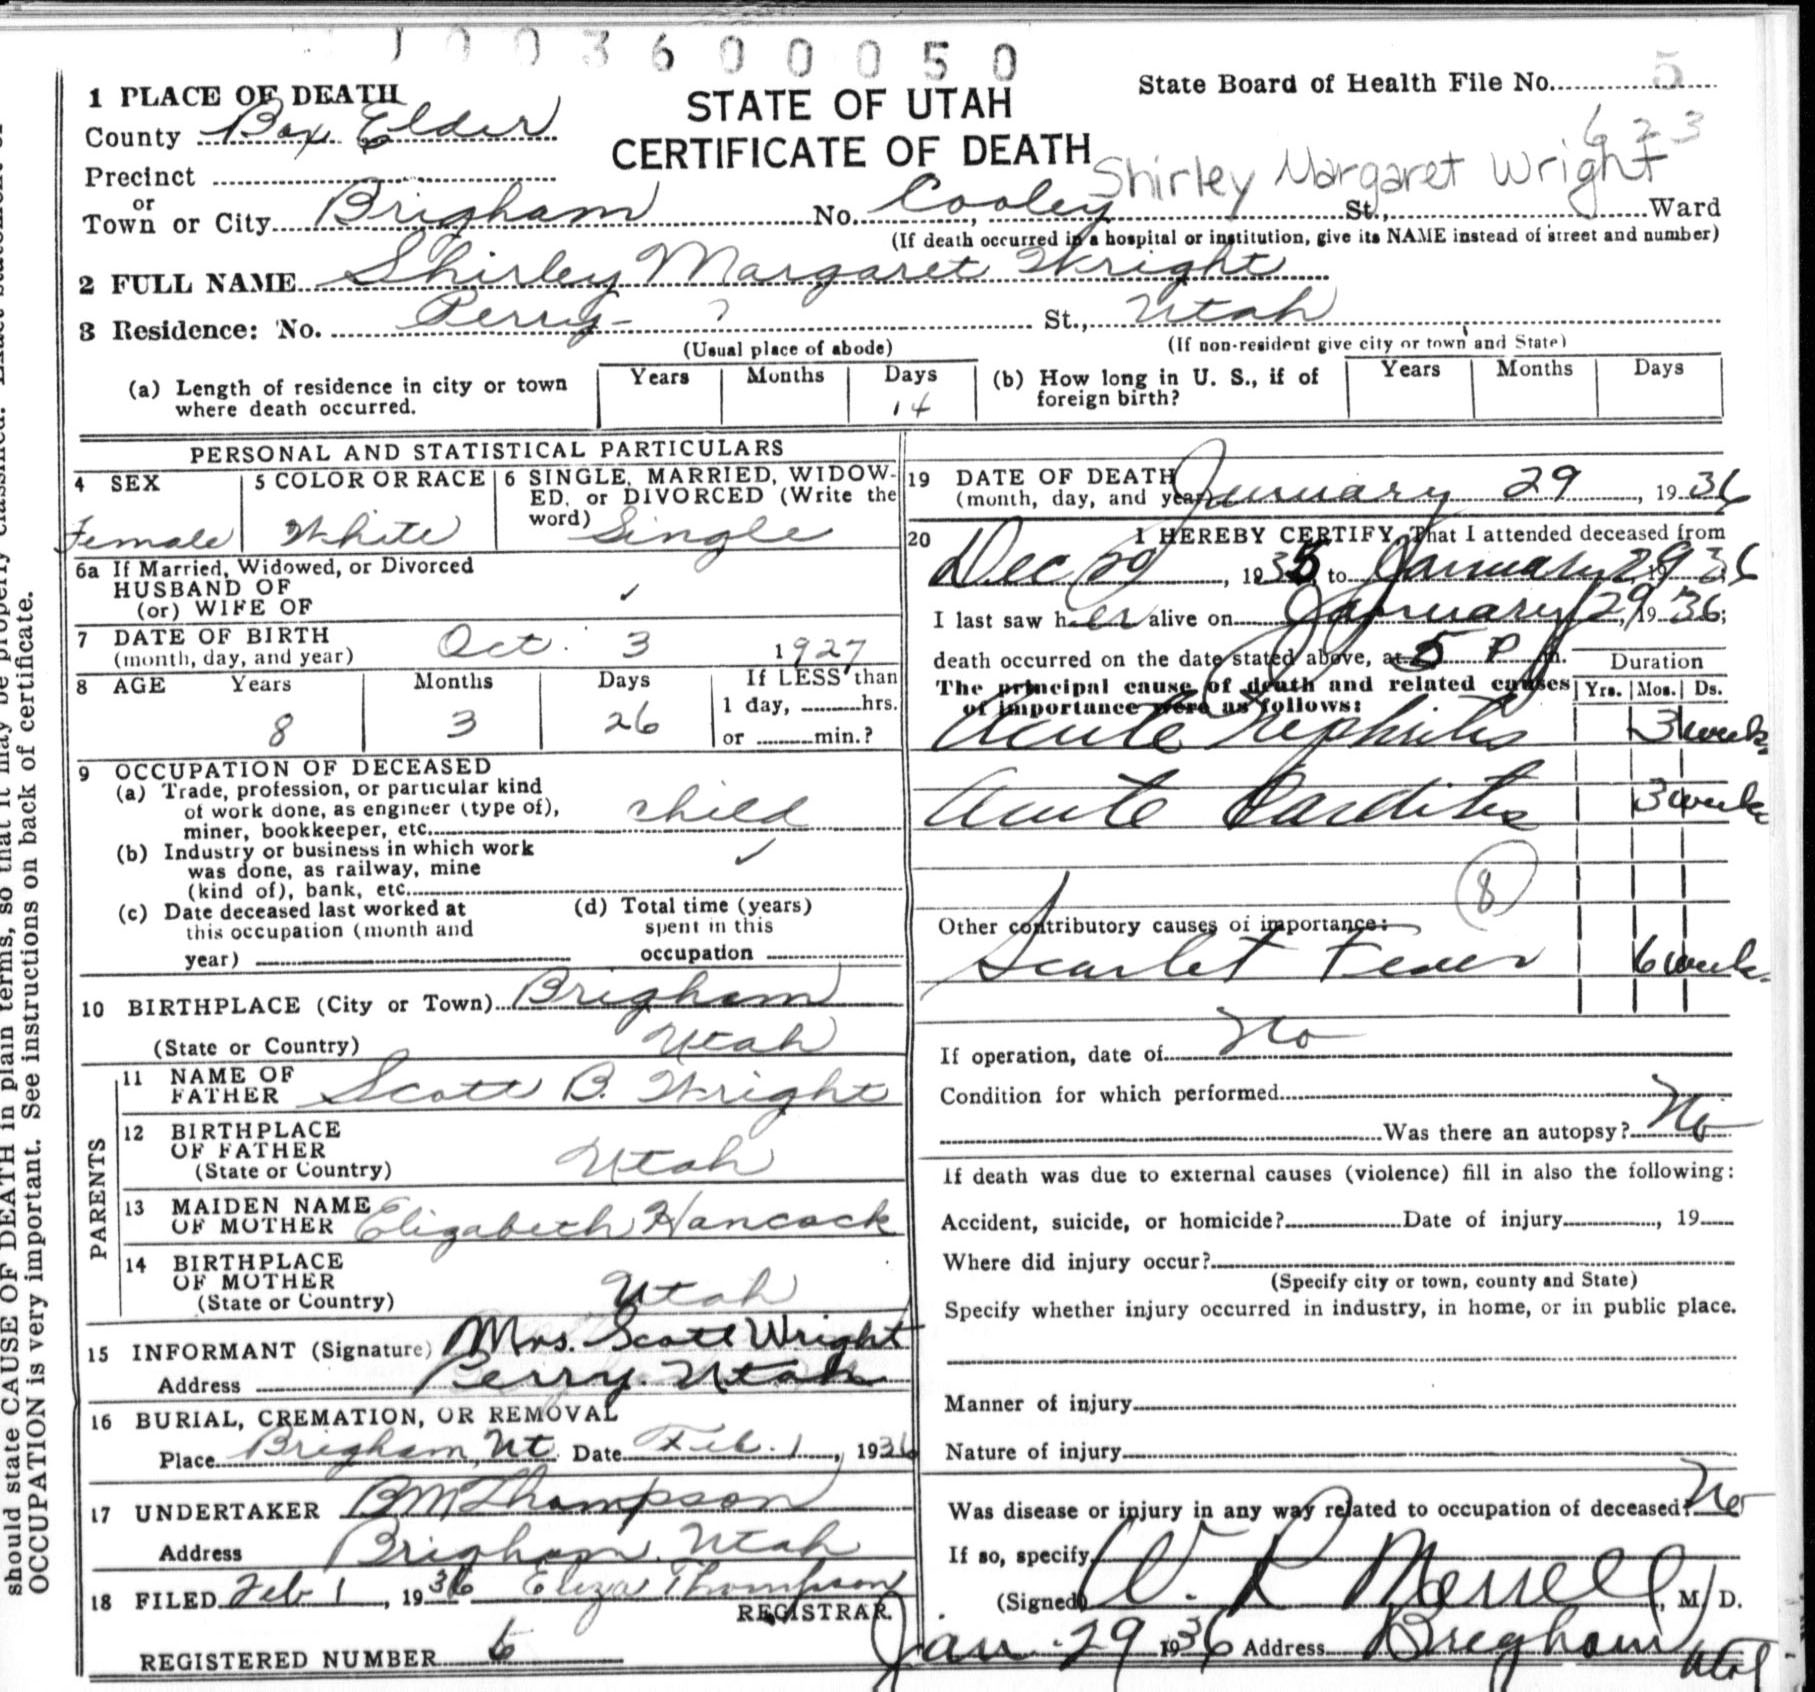 1003600050
1 PLACE OF DEATH
STATE OF UTAH
CERTIFICATE OF DEATH
State Board of Health File No. 5
623
County Box Elder
Shirley Margaret Wright
Precinct
or
Town or City Brigham No. Cooley St., Ward
(If death occurred in a hospital or institution, give its NAME instead of street and number)
2 FULL NAME Shirley Margaret Wright
3 Residence: No. Perry - ? St., Utah
(Usual place of abode) (If non-resident give city or town and State)
(a) Length of residence in city or town where death occurred. Years Months Days 14
(b) How long in U. S., if of foreign birth? Years Months Days
PERSONAL AND STATISTICAL PARTICULARS
4 SEX Female
5 COLOR OR RACE White
6 SINGLE, MARRIED, WIDOW-
ED, or DIVORCED (Write the
word) Single
6a If Married, Widowed, or Divorced
HUSBAND OF
(or) WIFE OF ✓
7 DATE OF BIRTH
(month, day, and year) Oct. 3 1927
8 AGE Years Months Days If LESS than
8 3 26 1 day, hrs.
or min.?
9 OCCUPATION OF DECEASED
(a) Trade, profession, or particular kind
of work done, as engineer (type of),
miner, bookkeeper, etc. child
(b) Industry or business in which work
was done, as railway, mine
(kind of), bank, etc. ✓
(c) Date deceased last worked at
this occupation (month and
year)
(d) Total time (years)
spent in this
occupation
10 BIRTHPLACE (City or Town) Brigham
(State or Country) Utah
PARENTS
11 NAME OF
FATHER Scott B. Wright
12 BIRTHPLACE
OF FATHER
(State or Country) Utah
13 MAIDEN NAME
OF MOTHER Elizabeth Hancock
14 BIRTHPLACE
OF MOTHER
(State or Country) Utah
15 INFORMANT (Signature) Mrs. Scott Wright
Address Perry. Utah
16 BURIAL, CREMATION, OR REMOVAL
Place Brigham, Ut. Date Feb. 1, 1936
17 UNDERTAKER B M Thompson
Address Brigham, Utah
18 FILED Feb 1, 1936 Eliza Thompson
REGISTRAR.
REGISTERED NUMBER 6
19 DATE OF DEATH
(month, day, and year) January 29, 1936
20 I HEREBY CERTIFY, That I attended deceased from
Dec 29, 1935, to January 29 1936
I last saw her alive on January 29, 1936;
death occurred on the date stated above, at 5 P m.
The principal cause of death and related causes
of importance were as follows:
Duration
Yrs. Mos. Ds.
Acute Nephritis 3 weeks
Acute Carditis 3 weeks
8
Other contributory causes of importance:
Scarlet Fever 6 weeks
If operation, date of No
Condition for which performed
Was there an autopsy? No
If death was due to external causes (violence) fill in also the following:
Accident, suicide, or homicide? Date of injury, 19
Where did injury occur?
(Specify city or town, county and State)
Specify whether injury occurred in industry, in home, or in public place.
Manner of injury
Nature of injury
Was disease or injury in any way related to occupation of deceased? No
If so, specify
(Signed) W. R Merrell, M. D.
Jan. 29 1936 Address Brigham Utah
should state CAUSE OF DEATH in plain terms, so that it may be properly classified.
OCCUPATION is very important. See instructions on back of certificate.